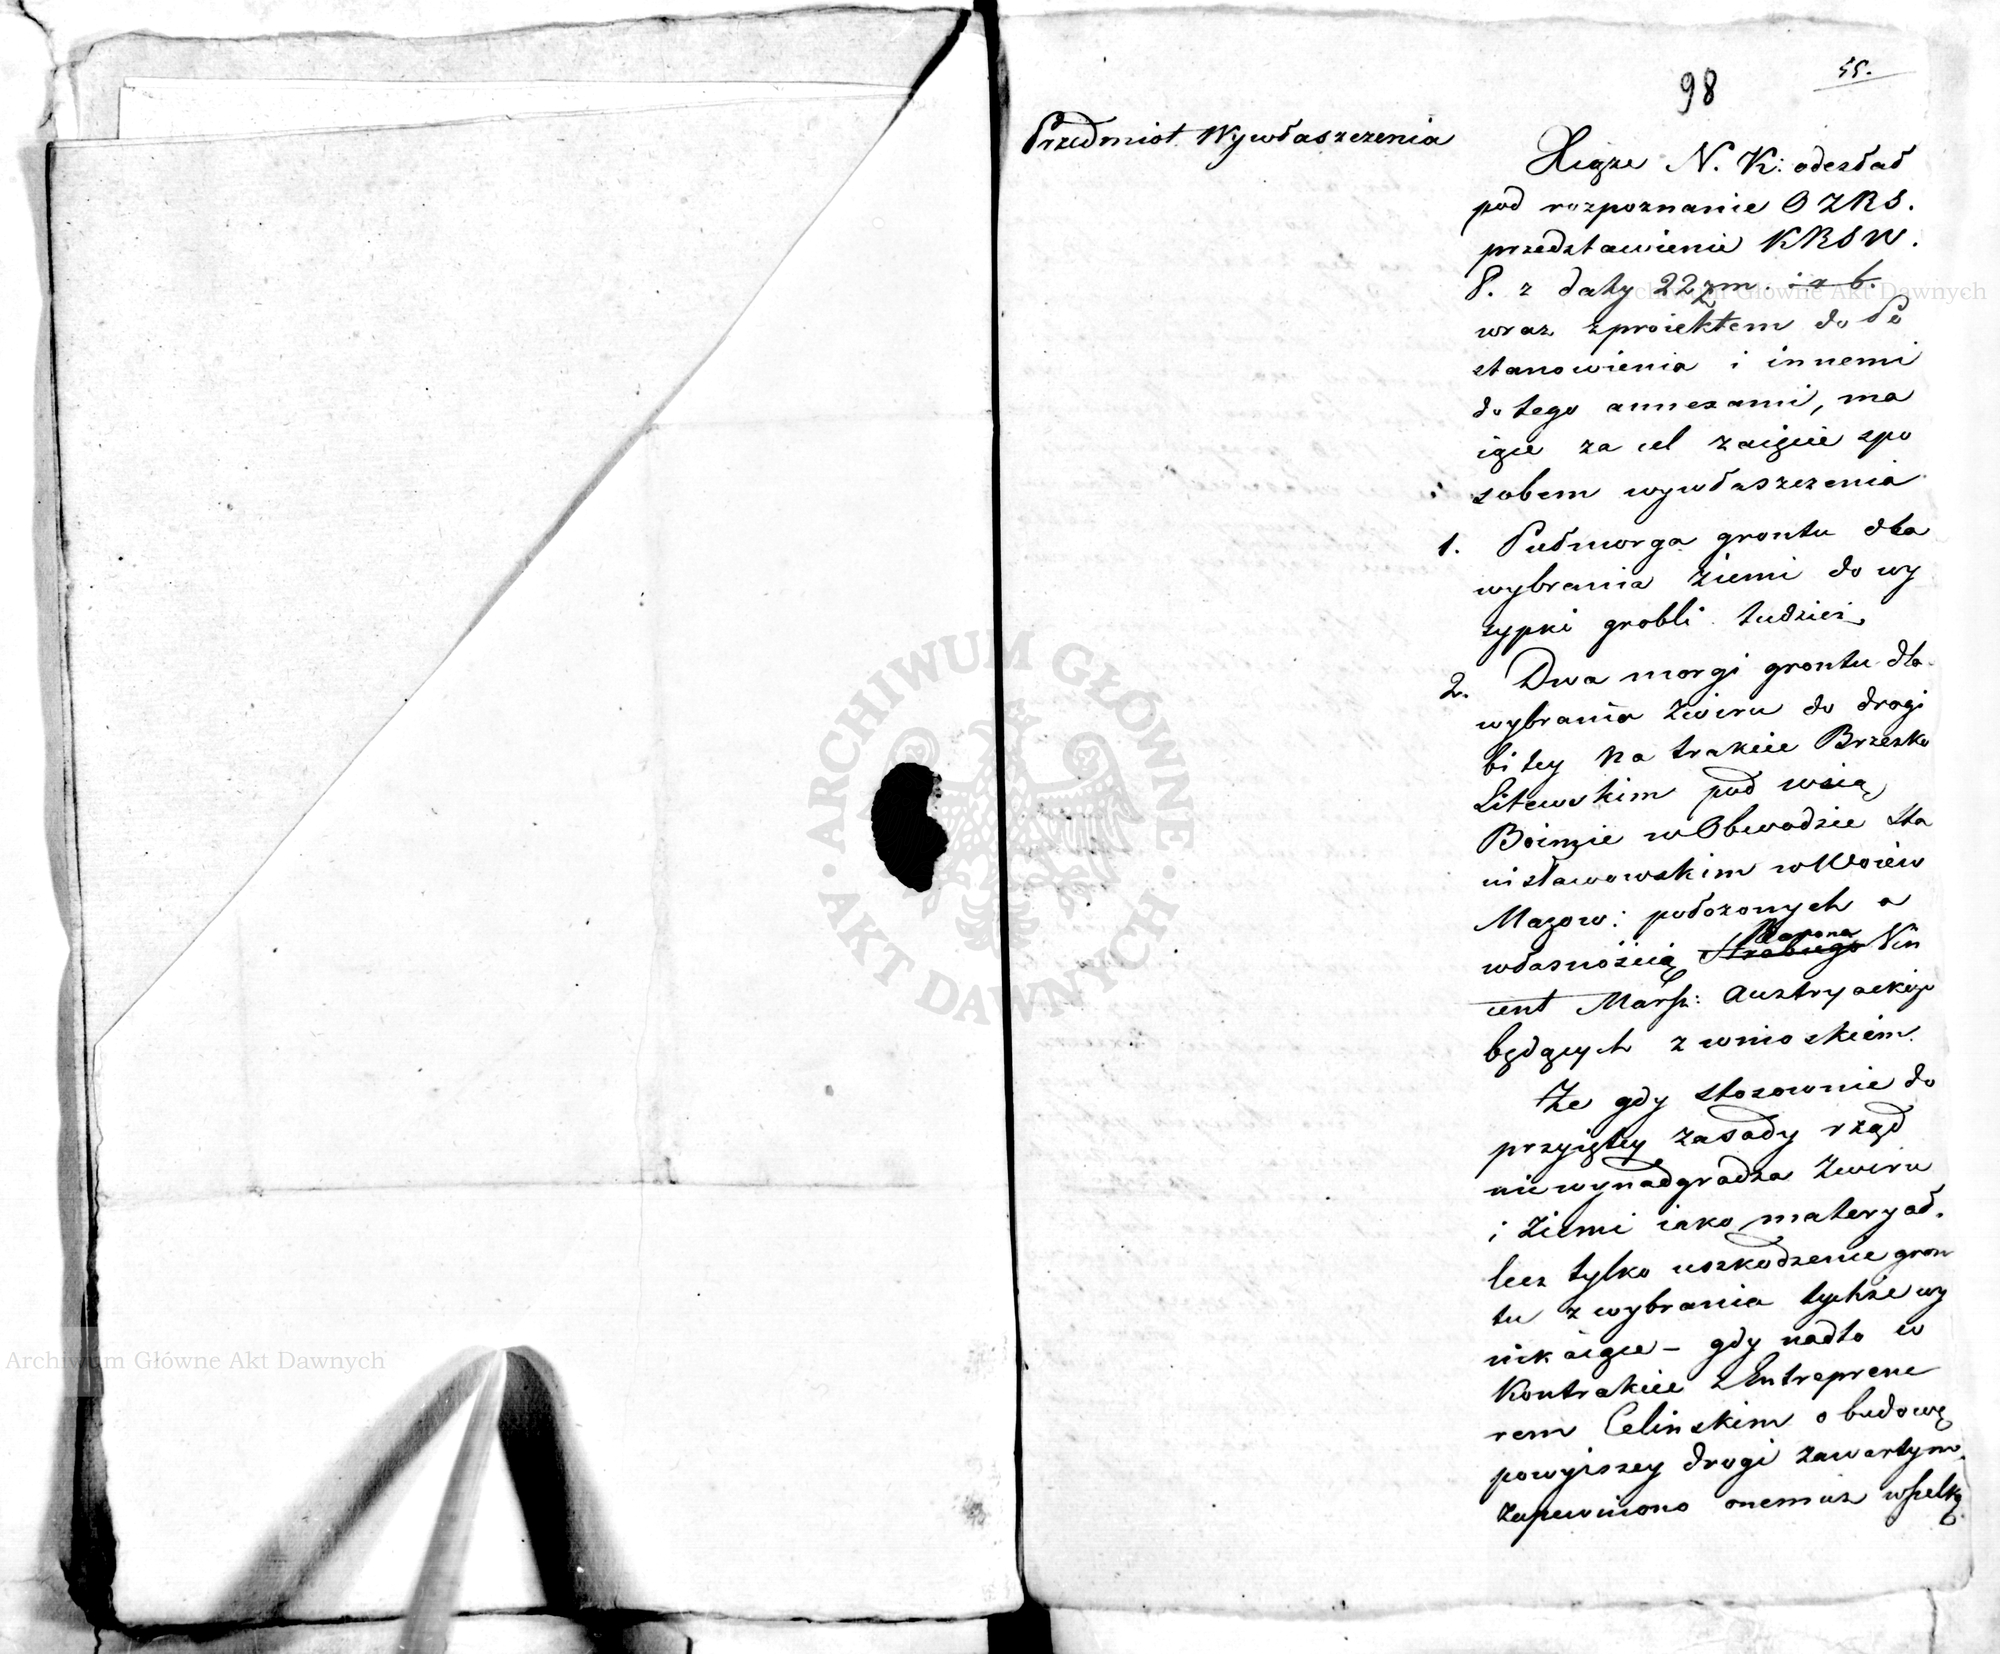 98
55.
Przedmiot Wywłaszczenia
Xiąże N. K: odesłał
pod rozpoznanie O Z R S.
przedstawienie K R S W.
P. z daty 22 z m. i r b.
wraz z proiektem do Po
stanowienia i innemi
do tego annexami, ma
iące za cel zaięcie spo
sobem wywłaszczenia
1. Pułmorga grontu dla
wybrania ziemi do wy
sypki grobli tudzież
2. Dwa morgi grontu dla
wybrania żwiru do drogi
bitey na trakcie Brzesko
Litewskim pod wsią
Boimie w Obwodzie Sta
nisławowskim w Woiew
Mazow: położonych a
własnością Hrabiego Barona Vin
cent Marsz: Austryackiego
będących z wnioskiem.
Że gdy stosownie do
przyiętey zasady rząd
nie wynadgradza żwiru
i ziemi iako materyał,
lecz tylko uszkodzenie gron
tu z wybrania tychże wy
nikaiące – gdy nadto w
Kontrakcie z Entreprene
rem Celinskim o budowę
powyższey drogi zawartym,
zapewniono onemuż wszelką
ARCHIWUM GŁÓWNE AKT DAWNYCH
Archiwum Główne Akt Dawnych
Archiwum Główne Akt Dawnych